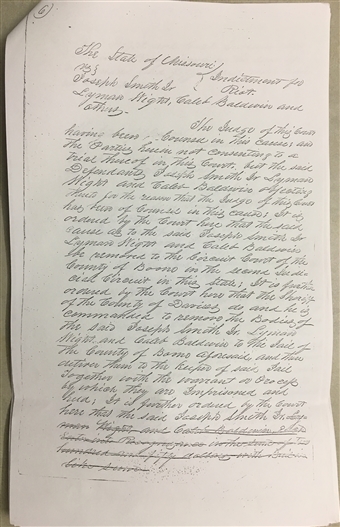 6
The State of Missouri
vs }
Joseph Smith Jr { Indictment for
Lyman Wight, Caleb Baldwin and Riot.
others.
The Judge of this Court
having been Counsel in this cause; and
the Parties herein not consenting to a
trial thereof in this Court, but the said
Defendants Joseph Smith Jr Lyman
Wight and Caleb Baldwin objecting
thereto for the reason that the Judge of this Court
has been of Counsel in this cause; It is
ordered by the Court here that the said
cause as to the said Joseph Smith Jr
Lyman Wight and Caleb Baldwin
be removed to the Circuit Court of the
County of Boone in the second Judi-
cial Circuit in this State; It is further
ordered by the Court here that the Sheriff
of the County of Daviess do and he is
commanded to remove the Bodies of
the said Joseph Smith Jr Lyman
Wight and Caleb Baldwin to the Jail of
the County of Boone aforesaid and there
deliver them to the keeper of said Jail
together with the warrant or Process
by which they are Imprisoned and
held; It is further ordered by the Court
here that the said Joseph Smith Jr Ly-
man Wight, and Caleb Baldwin enter
into Recognizance in the sum of two
hundred and fifty dollars with
like sum